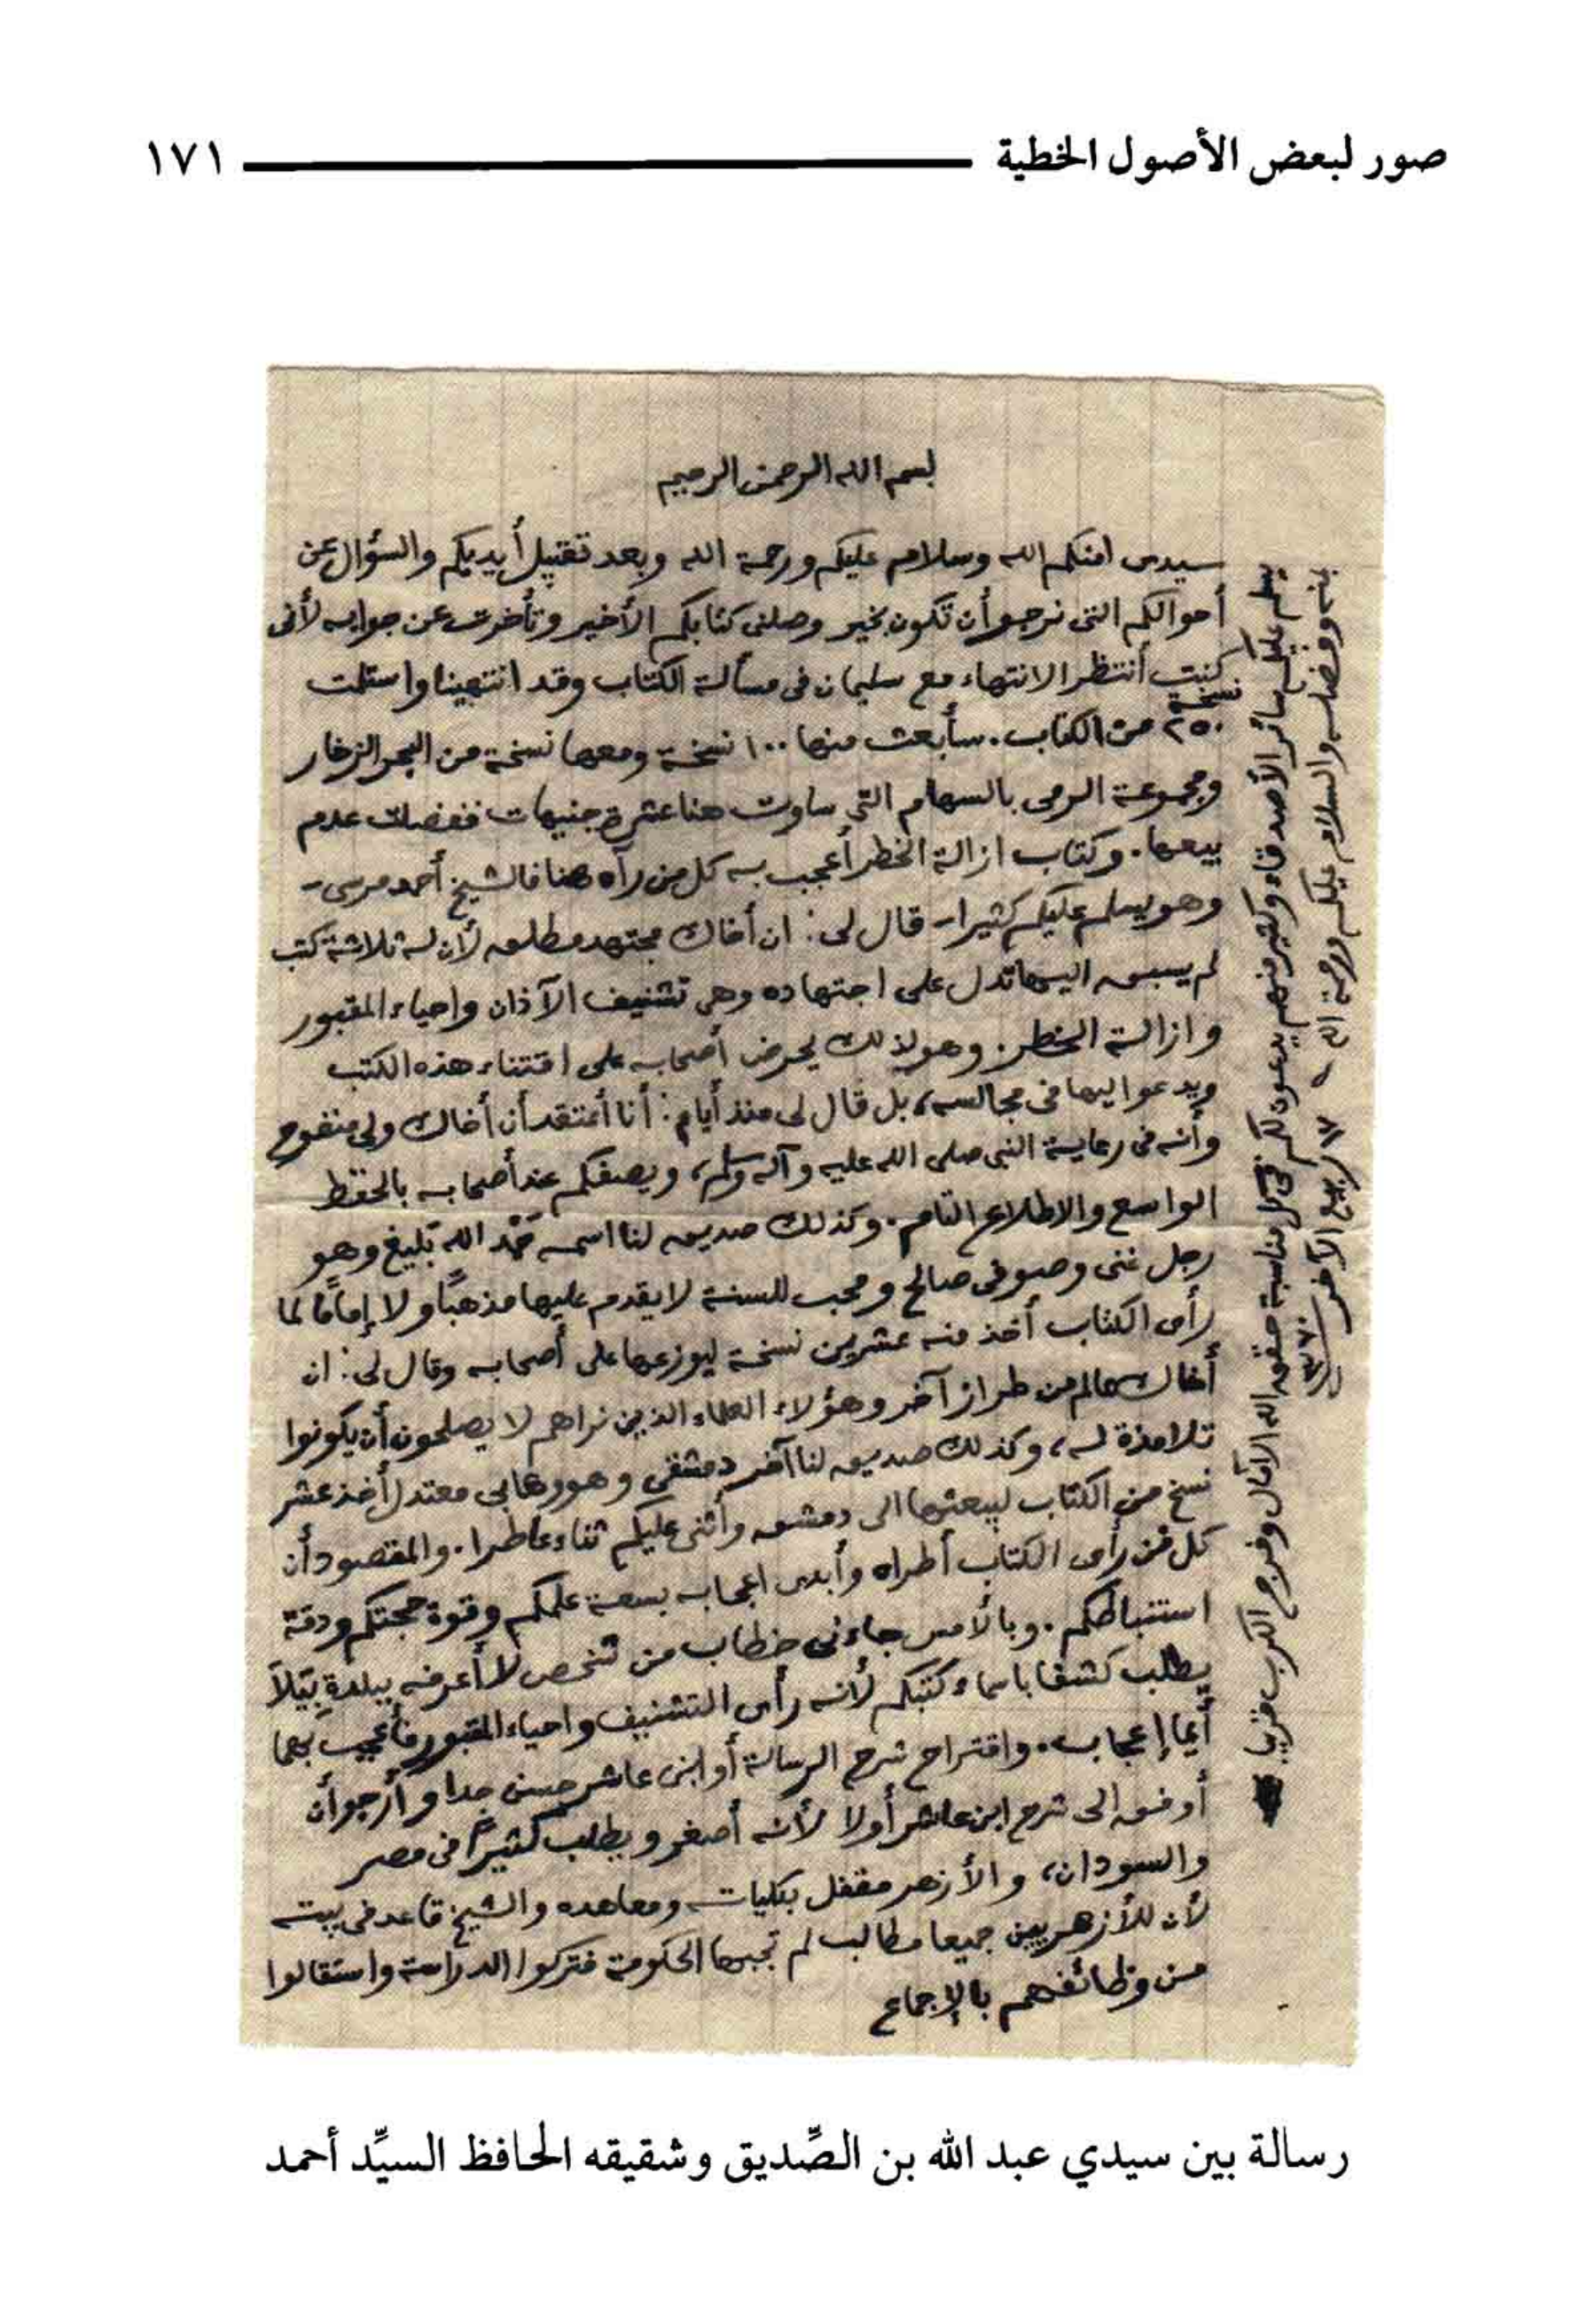 صور لبعض الأصول الخطية ١٧١
بسم الله الرحمن الرحيم
سيدى امنكم الله وسلام عليكم ورحمة الله وبعد تقبيل أيديكم والسؤال عن
أحوالكم التى نرجو أن تكون بخير وصلنى كتابكم الأخير وتأخرت عن جوابه لأنى
كنت أنتظر الانتهاء مع سليمان فى مسألة الكتاب وقد انتهينا واستلمت
٢٥٠ نسخة من الكتاب. سأبعث منها ١٠٠ نسخة ومعها نسخة من البحر الزخار
ومجموعة الرمى بالسهام التى ساوت هنا عشرة جنيهات ففضلت عدم
بيعها. وكتاب ازالة الخطر أعجب به كل من رآه هنا فالشيخ أحمد مرسى -
وهو يسلم عليكم كثيرا - قال لى: ان أخاك مجتهد مطلق لأن له ثلاثة كتب
لم يسبق اليها تدل على اجتهاده وهى تشنيف الآذان واحياء المقبور
وازالة الخطر. وهو لذلك يحرض أصحابه على اقتناء هذه الكتب
ويدعو اليها فى مجالسه، بل قال لى منذ أيام: أنا أعتقد أن أخاك ولى منفوح
وأنه فى رعاية النبى صلى الله عليه وآله وسلم، ويصفكم عند أصحابه بالحفظ
الواسع والاطلاع التام. وكذلك صديق لنا اسمه حَمْد الله تبليغ وهو
رجل غنى وصوفى صالح ومحب للسنة لا يقدم عليها مذهبًا ولا إمامًا لما
رأى الكتاب أخذ منه عشرين نسخة ليوزعها على أصحابه وقال لى: ان
أخاك عالم من طراز آخر وهؤلاء العلماء الذين نراهم لا يصلحون أن يكونوا
تلامذة له، وكذلك صديق لنا آخر دمشقى وهو وهابى معتدل أخذ عشر
نسخ من الكتاب ليبعثها الى دمشق وأثنى عليكم ثناء عاطرا. والمقصود أن
كل من رأى الكتاب أطراه وأبدى اعجابه بسعة علمكم وقوة حجتكم ودقة
استنباطكم. وبالأمس جاءنى خطاب من شخص لا أعرفه ببلدة تَلَا
يطلب كشفا باسماء كتبكم لأنه رأى التشنيف واحياء المقبور فأعجب بهما
أيما إعجاب. واقتراح شرح الرسالة أو ابن عاشر حسن جدا وأرجو أن
أوفق الى شرح ابن عاشر أولا لأنه أصغر ويطلب كثيرًا فى مصر
والسودان، والأزهر مقفل بكلياته ومعاهده والشيخ قاعد فى بيته
لأن للأزهريين جميعا مطالب لم تجبها الحكومة فتركوا الدراسة واستقالوا
من وظائفهم بالإجماع
يسلم عليكم سائر الأصدقاء وكثير منهم يدعون لكم فى كل مناسبة حقق الله الآمال وفرج الكرب قريبا
بمنه وفضله والسلام عليكم ورحمة الله
ربيع الآخر ١٣٧٠
رسالة بين سيدي عبد الله بن الصِّديق وشقيقه الحافظ السيِّد أحمد